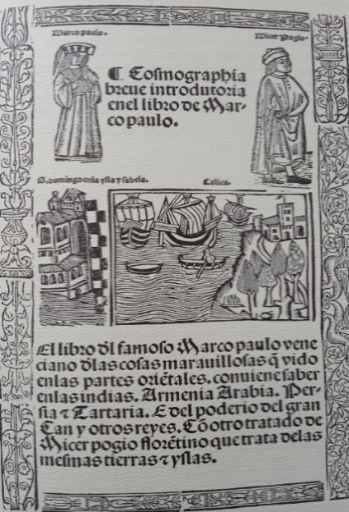 Marco paulo.
Micer Pogio.
¶ Cosmographia
breue introdutoria
enel libro de Mar-
co paulo.
S. domingo en la ysla ysabela.
Calicu.
El libro dl famoso Marco paulo vene
ciano dlas cosas marauillosas q̃ vido
enlas partes oriẽtales. conuiene saber
enlas indias. Armenia Arabia. Per-
sia ⁊ Tartaria. E del poderio del gran
Can y otros reyes. Cõ otro tratado de
Micer pogio florẽtino que trata delas
mesmas tierras ⁊ yslas.